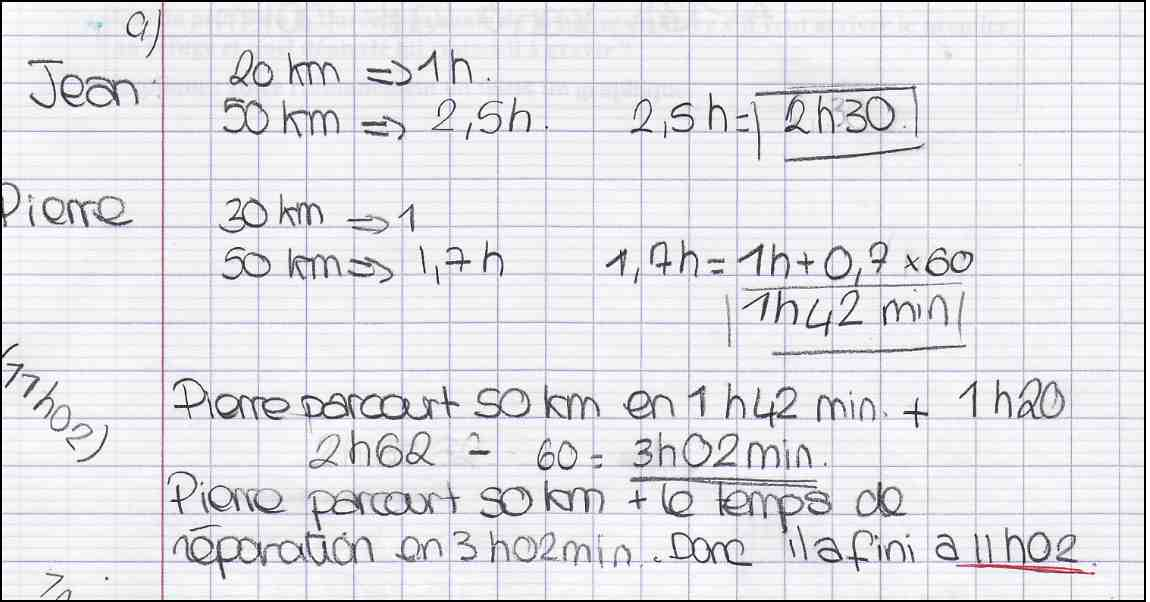 a)
Jean 20 km => 1h.
50 km => 2,5h. 2,5h = 2h30.
Pierre 30 km => 1
50 km => 1,7h 1,7h = 1h + 0,7 × 60
1h42 min
(11h02)
Pierre parcourt 50 km en 1h42 min. + 1h20
2h62 - 60 = 3h02min.
Pierre parcourt 50 km + le temps de
réparation en 3h02min. Donc il a fini à 11h02.